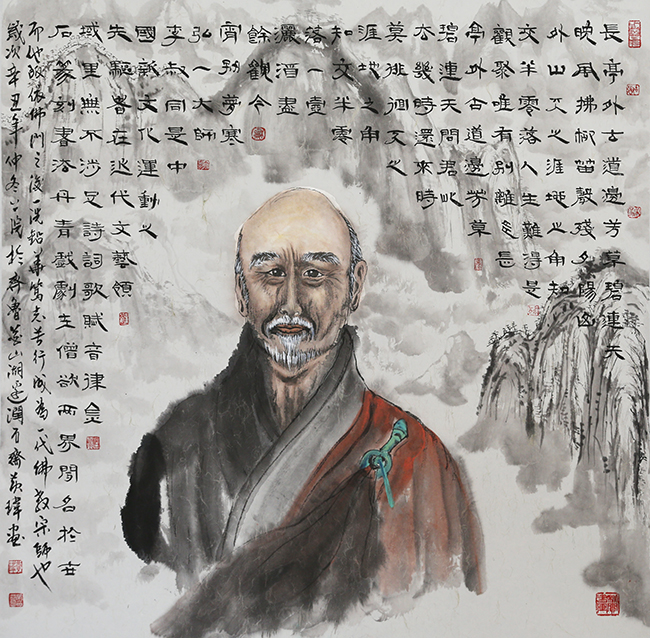 長亭外古道邊芳草碧連天
晚風拂柳笛聲殘夕陽山
外山天之涯地之角知
交半零落人生難得是
觀聚唯有別離多長
亭外古道邊芳草
碧連天問君此
去幾時還來時
莫徘徊天之
涯地之角
知交半零
落一壺
酒盡
餘觀今
宵別夢寒
弘一大師
李叔同是中
國新文化運動之
先驅者在近代文藝領
域里無不涉足詩詞歌賦音律金
石篆刻書法丹青戲劇在僧欲兩界聞名於世
而他皈依佛門之後一洗鉛華篤志苦行成為一代佛教宗師也
歲次辛丑年仲冬於齊魯山湖邊潤百齋瑋畫